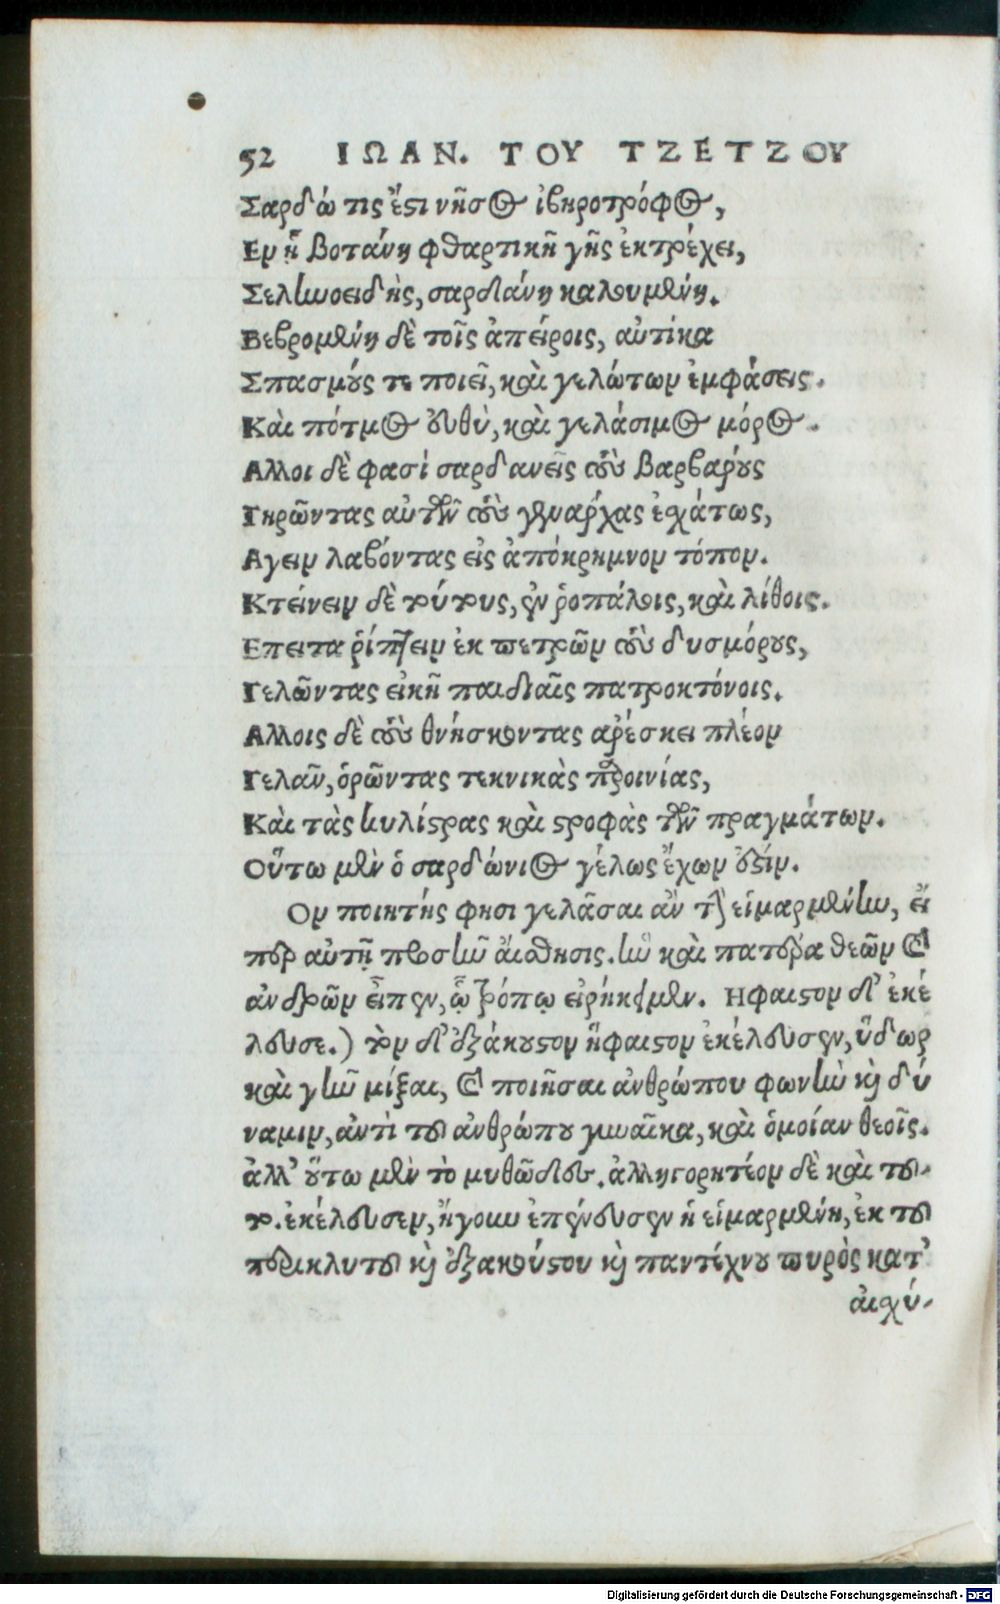 52 ΙΩΑΝ. ΤΟΥ ΤΖΕΤΖΟΥ
Σαρδώ τις ἔστι νῆσος ἰβηροτρόφος,
Εν ᾗ βοτάνη φθαρτικὴ γῆς ἐκτρέχει,
Σεληνοειδὴς, σαρδιάνη καλουμένη.
Βεβρομένη δὲ τοῖς ἀπείροις, αὐτίκα
Σπασμούς τε ποιεῖ, καὶ γελώτων ἐμφάσεις.
Καὶ πότμος οὐθὺ, καὶ γελάσιμος μόρος.
Αλλοι δὲ φασί σαρδανεῖς τοὺς βαρβάρους
Γηρῶντας αὐτῶν τοὺς γενάρχας ἐσχάτως,
Αγειν λαβόντας εἰς ἀπόκρημνον τόπον.
Κτείνειν δὲ τούτους, ἐν ῥοπάλοις, καὶ λίθοις.
Επειτα ῥίπτειν ἐκ πετρῶν τοὺς δυσμόρους,
Γελῶντας εἰκῆ παιδιαῖς πατροκτόνοις.
Αλλοις δὲ τοὺς θνήσκοντας αρέσκει πλέον
Γελᾶν, ὁρῶντας τεκνικὰς παροινίας,
Καὶ τὰς κυλίστρας καὶ στροφὰς τῶν πραγμάτων.
Οὕτω μὲν ὁ σαρδώνιος γέλως ἔχων ὀξίν.
Ον ποιητής φησι γελᾶσαι ἀν τὴν εἱμαρμένην, εἴ
περ αὐτῇ προσῆν ἄισθησις. ἣν καὶ πατέρα θεῶν καὶ
ἀνδρῶν εἶπεν, ᾧ τρόπῳ εἰρήκαμεν. Ηφαιστον δ' ἐκέ
λευσε.) τὸν δ' ἐξάκουστον ἥφαιστον ἐκέλευσεν, ὕδωρ
καὶ γῆν μίξαι, καὶ ποιῆσαι ἀνθρώπου φωνὴν καὶ δύ
ναμιν, ἀντὶ τοῦ ἀνθρώπου γυναῖκα, καὶ ὁμοίαν θεοῖς.
ἀλλ' οὕτω μὲν τὸ μυθῶδες. ἀλληγορητέον δὲ καὶ τοῦ-
το. ἐκέλευσεν, ἤγουν ἐπένευσεν ἡ εἱμαρμένη, ἐκ τοῦ
περικλυτοῦ καὶ ἐξακούστου καὶ παντέχνου πυρὸς κατ'
αἰσχύ-
Digitalisierung gefördert durch die Deutsche Forschungsgemeinschaft - DFG